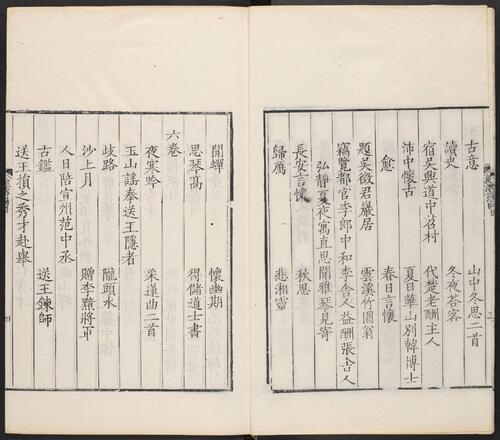 古意　山中冬思二首
讀史　冬夜荅客
宿吳興道中苕村　代楚老酬主人
沛中懷古　夏日華山別韓博士
愈　春日言懷
題吳徵君巖居　雲溪竹園翁
竊覽都官李郎中和李舍人益酬張舍人
弘靜夏夜寓直思聞雅琴見寄
長安言懷　秋思
歸鴈　悲湘靈
聞蟬　懷幽期
思琴高　得儲道士書
六卷
夜寒吟　采蓮曲二首
玉山謠奉送王隱者
歧路　隴頭水
沙上月　贈李黯將軍
人日陪宣州范中丞
古鑑　送王鍊師
送王損之秀才赴舉